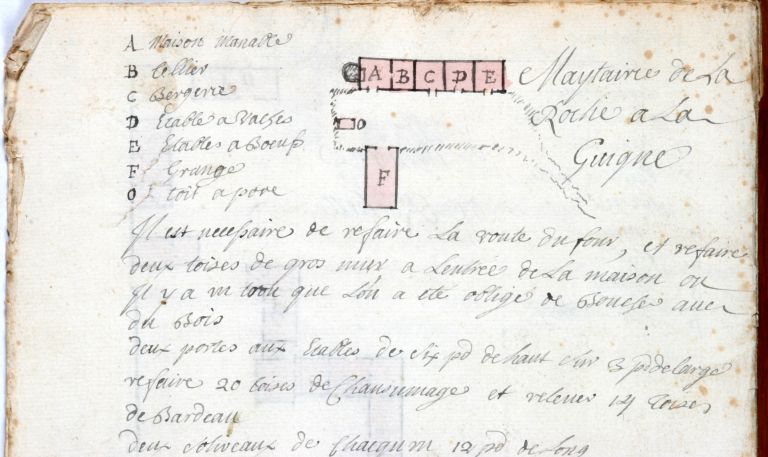 A Maison Manable
B Cellier
C Bergerie
D Etable a Vaches
E Etables a Boeufs
F Grange
O toit a porc
A B C D E
O
F
Maytairie de La
Roche a La
Guigne
Il est necessaire de refaire La voute du four, et refaire
deux toises de gros mur a Lentrée de La maison ou
Il y a un trou que Lon a été obligé de Boucher avec
du Bois
deux portes aux Etables de six pd de haut sur 3 pd de large
refaire 20 toises de Chaumage et relever 14 toises
de Bardeau
deux soliveaux de Chacqun 12 pd de Long